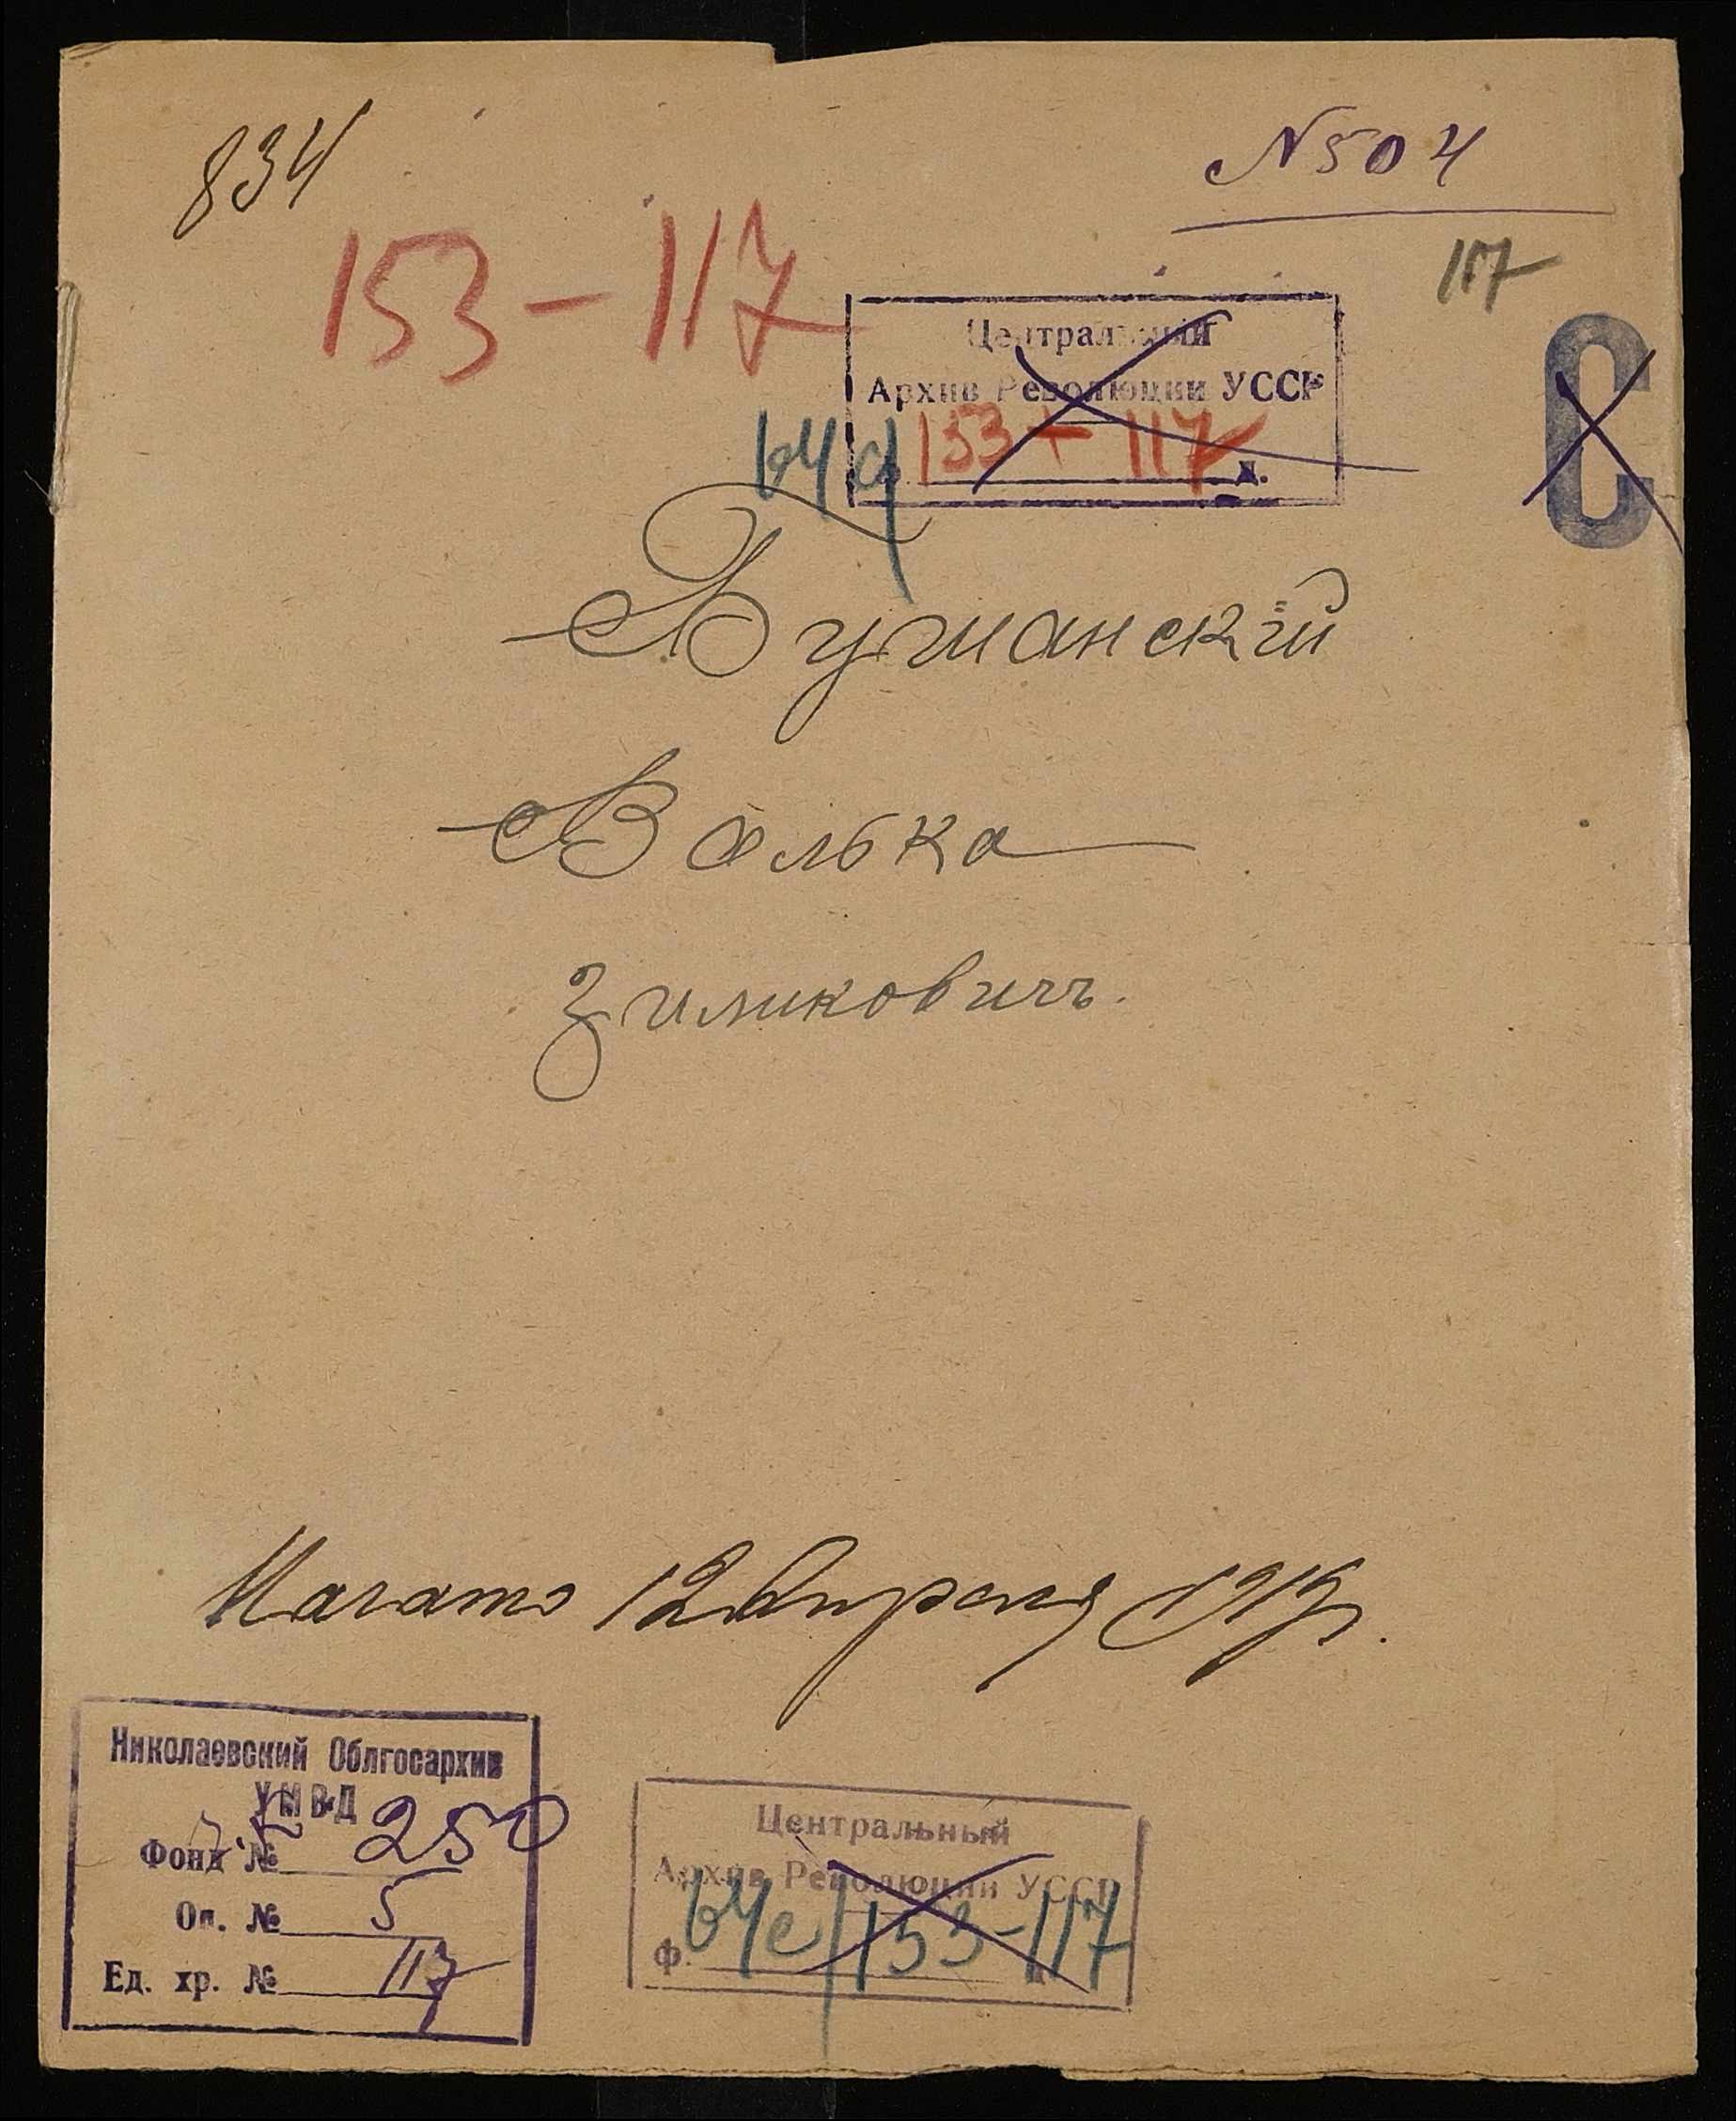 834
N 504
153 – 117
117
Центральный
Архив Революции УССР
153 – 117
д.
С
Думанскій
Волька
Зиликовичъ.
Начато 12 Апреля 1919 г.
Николаевский Облгосархив
УМВД
Фонд № 250
Оп. № 5
Ед. хр. № 117
Центральный
Архив Революции УССР
ф. 64с/153–117